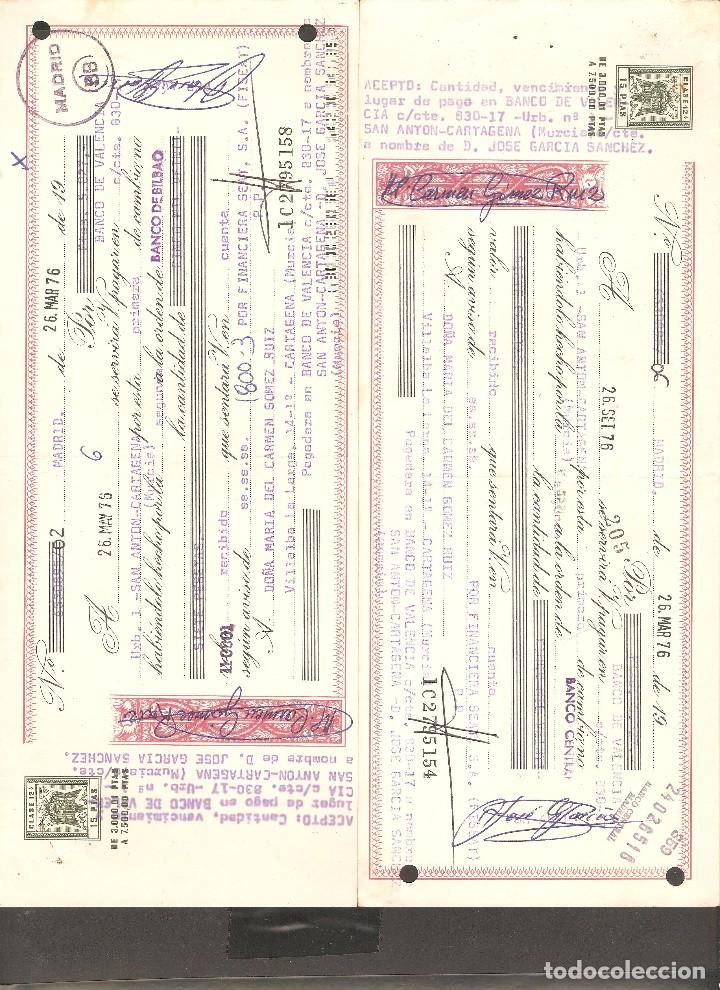 MADRID
BB
Nº 02 MADRID. de 26. MAR 76 de 19
A 26. MAY 76 6 Por
se servirá V. pagar en BANCO DE VALENCIA
Urb. 1 -SAN ANTON-CARTAGENA por esta primera de cambio no c/cta. 830-
(Murcia)
habiéndolo hecho por la segunda a la orden de BANCO DE BILBAO
la cantidad de
SIETE PESETAS.
recibido que sentará V. en cuenta
según aviso de ss.ss.ss. 1800-3 POR FINANCIERA SEAT, S.A. (FISEAT)
P.P.
A DOÑA MARIA DEL CARMEN GOMEZ RUIZ 1C2795158
Villalba la Larga 14-12 - CARTAGENA (Murcia)
Pagadera en BANCO DE VALENCIA c/cte. 830-17 a nombre
SAN ANTON-CARTAGENA -D. JOSE GARCIA SANCHEZ
(Murcia)
Mª Carmen Gomez Ruiz
ACEPTO: Cantidad, vencimien
lugar de pago en BANCO DE VALE
CIA c/cte. 830-17 -Urb. nº
SAN ANTON-CARTAGENA (Murcia)/cte.
a nombre de D. JOSE GARCIA SANCHEZ.
CLASE 12ª
15 PTAS
DE 3.000,01 PTAS
A 7.500,00 PTAS
ACEPTO: Cantidad, vencimien
lugar de pago en BANCO DE VALE
CIA c/cte. 830-17 -Urb. nº
SAN ANTON-CARTAGENA (Murcia)/cte.
a nombre de D. JOSE GARCIA SANCHEZ.
CLASE 12ª
15 PTAS
DE 3.000,01 PTAS
A 7.500,00 PTAS
Mª Carmen Gomez Ruiz
Nº 06 MADRID. de 26 MAR 76 de 19
A 26 SET 76 205 Por
se servirá V. pagar en BANCO DE VALENCIA
Urb. 1 -SAN ANTON-CARTAGENA por esta primera de cambio no
(Murcia)
habiéndolo hecho por la a la orden de BANCO CENTRAL
la cantidad de
valor recibido que sentará V. en cuenta
según aviso de ss.ss.ss. POR FINANCIERA SEAT, S.A. (FISEAT)
P.P.
A DOÑA MARIA DEL CARMEN GOMEZ RUIZ 1C2795154
Villalba la Larga 14-1º - CARTAGENA (Murci
Pagadera en BANCO DE VALENCIA c/c. 830-17 a nombre
SAN ANTON-CARTAGENA -D. JOSE GARCIA SANCHEZ
José Garcia
BANCO CENTRAL
24026516
859
todocoleccion